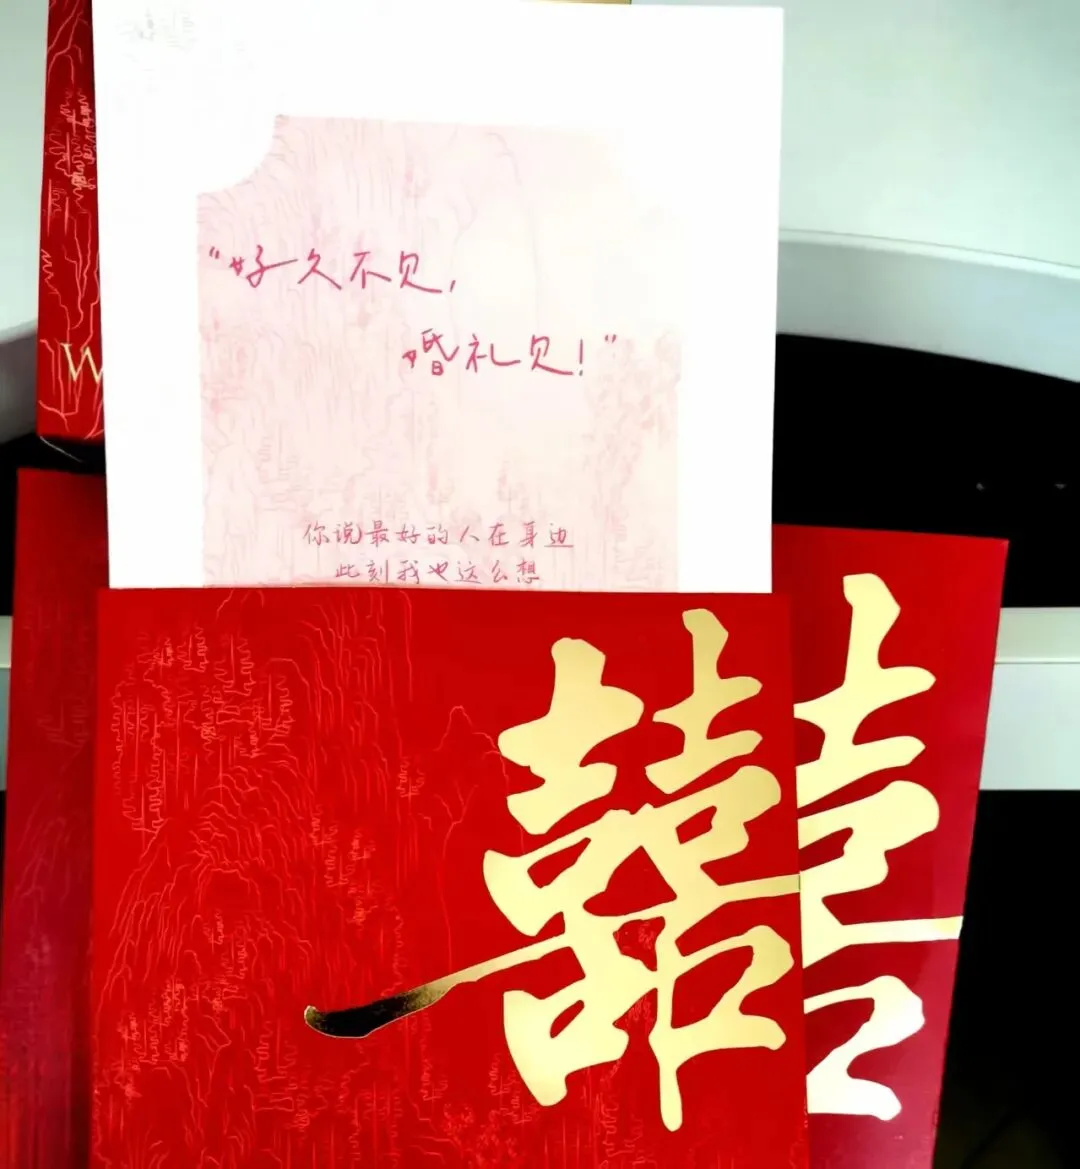 W
“好久不见，
婚礼见！”
你说最好的人在身边
此刻我也这么想
囍
囍